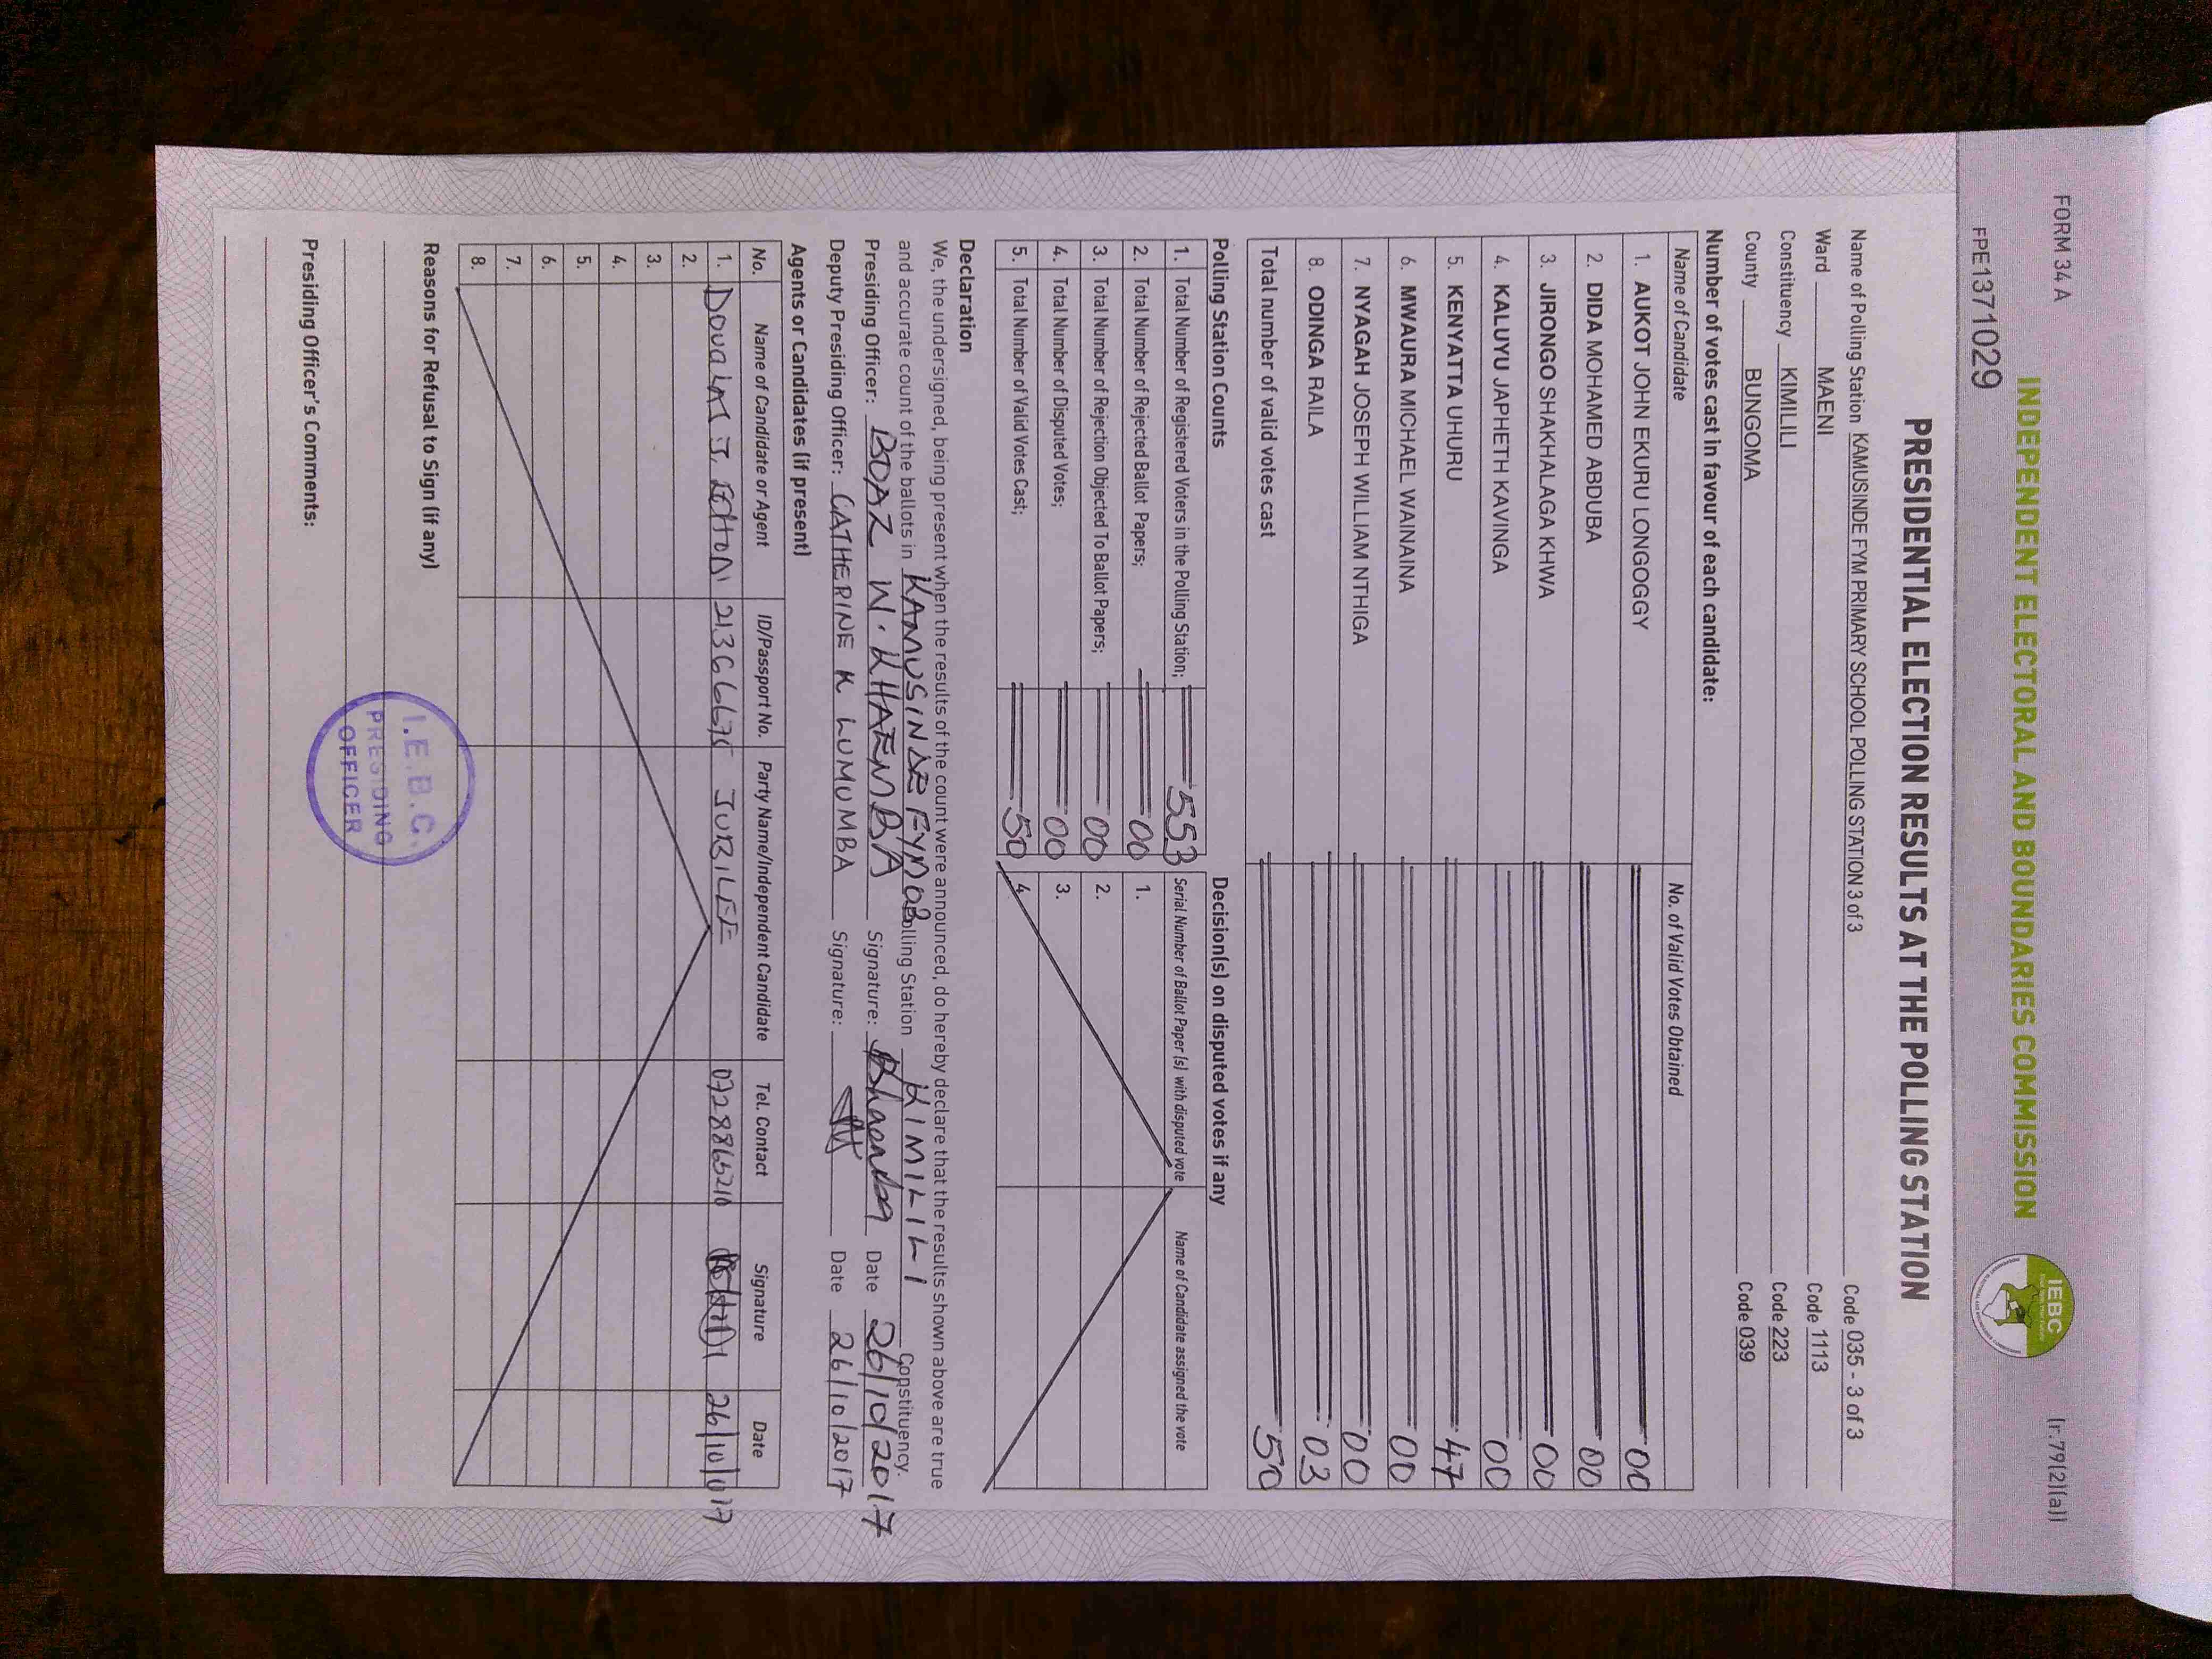 FORM 34A
(r.79(2)(a))
INDEPENDENT ELECTORAL AND BOUNDARIES COMMISSION
IEBC
FPE1371029
PRESIDENTIAL ELECTION RESULTS AT THE POLLING STATION
Name of Polling Station KAMUSINDE FYM PRIMARY SCHOOL POLLING STATION 3 of 3 Code 035 - 3 of 3
Ward MAENI Code 1113
Constituency KIMILILI Code 223
County BUNGOMA Code 039
Number of votes cast in favour of each candidate:
Name of Candidate No. of Valid Votes Obtained
1. AUKOT JOHN EKURU LONGOGGY 00
2. DIDA MOHAMED ABDUBA 00
3. JIRONGO SHAKHALAGA KHWA 00
4. KALUYU JAPHETH KAVINGA 00
5. KENYATTA UHURU 47
6. MWAURA MICHAEL WAINAINA 00
7. NYAGAH JOSEPH WILLIAM NTHIGA 00
8. ODINGA RAILA 03
Total number of valid votes cast 50
Polling Station Counts
1. Total Number of Registered Voters in the Polling Station; 553
2. Total Number of Rejected Ballot Papers; 00
3. Total Number of Rejection Objected To Ballot Papers; 00
4. Total Number of Disputed Votes; 00
5. Total Number of Valid Votes Cast; 50
Decision(s) on disputed votes if any
Serial Number of Ballot Paper (s) with disputed vote Name of Candidate assigned the vote
1.
2.
3.
4.
Declaration
We, the undersigned, being present when the results of the count were announced, do hereby declare that the results shown above are true
and accurate count of the ballots in KAMUSINDE FYM 03 Polling Station KIMILILI Constituency.
Presiding Officer: BOAZ W. KHAEMBA Signature: Date 26/10/2017
Deputy Presiding Officer: CATHERINE K LUMUMBA Signature: Date 26/10/2017
Agents or Candidates (if present)
No. Name of Candidate or Agent ID/Passport No. Party Name/Independent Candidate Tel. Contact Signature Date
1. J. JUBILEE 0728865210
2.
3.
4.
5.
6.
7.
8.
Reasons for Refusal to Sign (if any)
I.E.B.C.
PRESIDING
OFFICER
Presiding Officer's Comments: